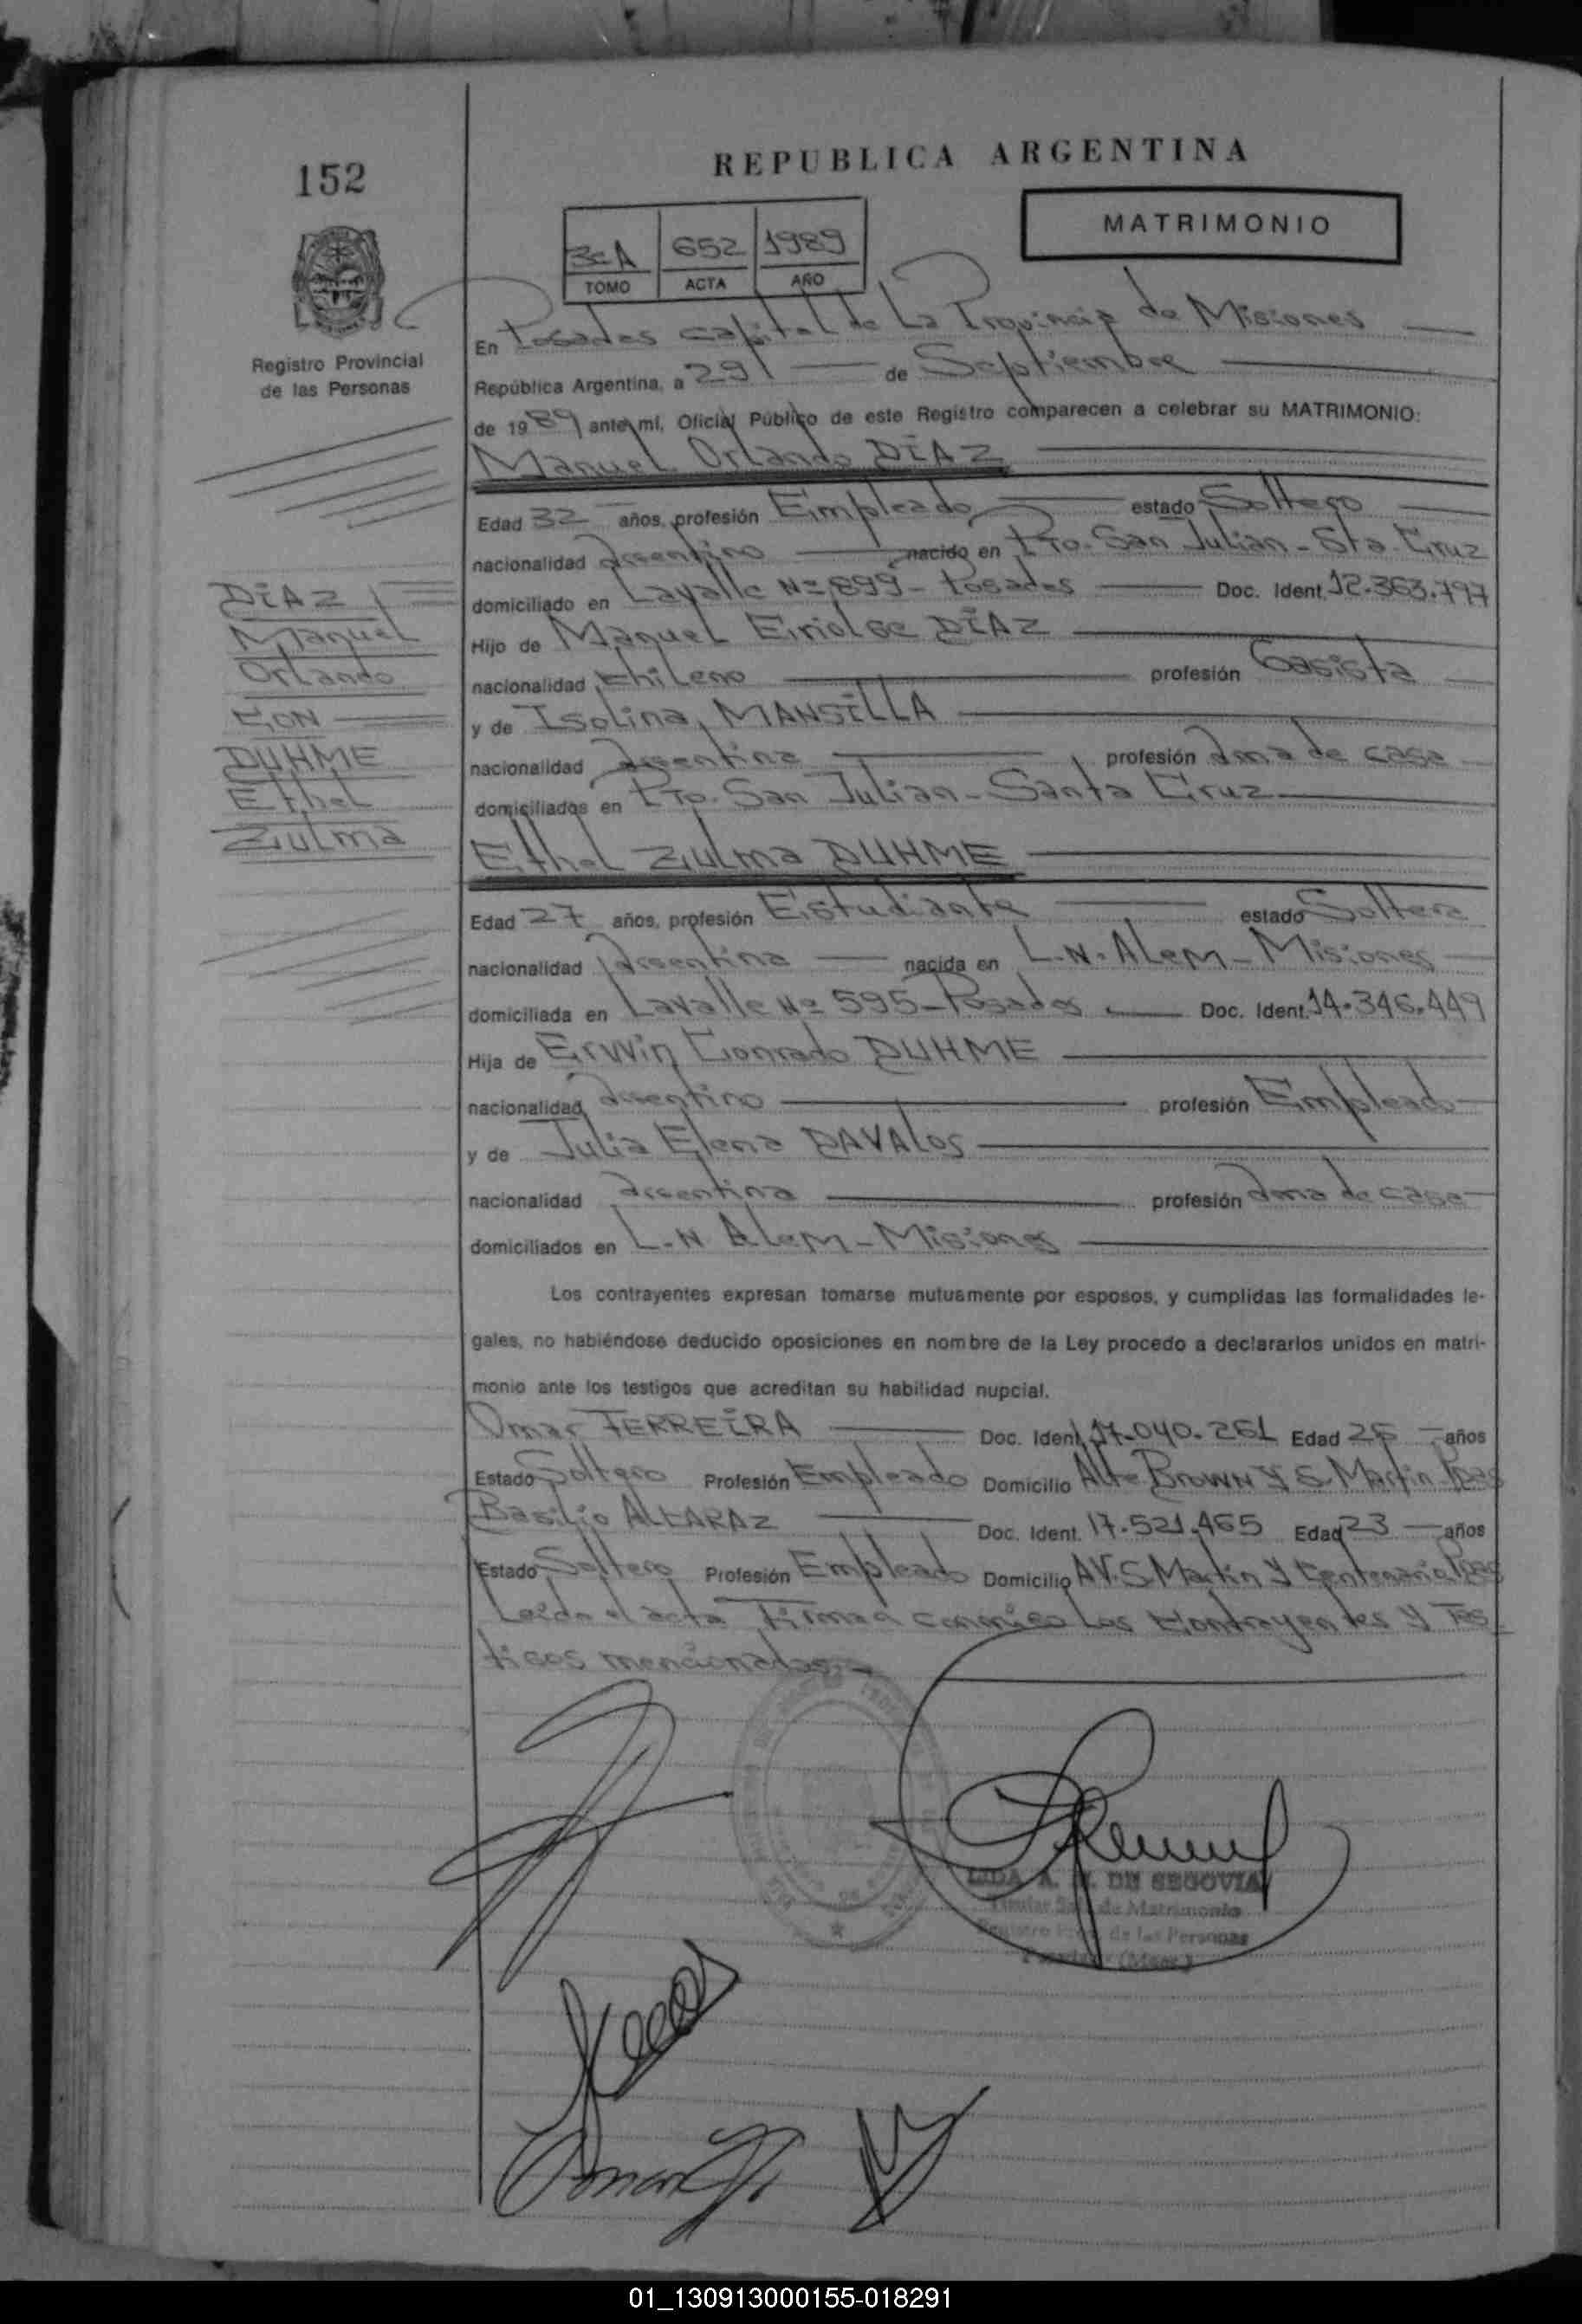 152
REPUBLICA ARGENTINA
MATRIMONIO
3ºA 652 1989
TOMO ACTA AÑO
Registro Provincial
de las Personas
En Posadas capital de La Provincia de Misiones
República Argentina, a 29 de Septiembre
de 1989 ante mí, Oficial Público de este Registro comparecen a celebrar su MATRIMONIO:
Manuel Orlando DÍAZ
Edad 32 años, profesión Empleado estado Soltero
nacionalidad Argentino nacido en Pto. San Julian - Sta Cruz
domiciliado en Lavalle Nº 899 - Posadas Doc. Ident. 12.363.797
Hijo de Manuel DÍAZ
nacionalidad chileno profesión Gasista
y de Isolina MANSILLA
nacionalidad Argentina profesión Ama de casa
domiciliados en Pto. San Julian - Santa Cruz
DIAZ
Manuel
Orlando
CON
DUHME
Ethel
Zulma
Ethel Zulma DUHME
Edad 27 años, profesión Estudiante estado Soltera
nacionalidad Argentina nacida en L.N. Alem - Misiones
domiciliada en Lavalle Nº 595 - Posadas Doc. Ident. 14.346.449
Hija de Erwin Conrado DUHME
nacionalidad Argentino profesión Empleado
y de Julia Elena DAVALOS
nacionalidad Argentina profesión Ama de casa
domiciliados en L.N Alem - Misiones
Los contrayentes expresan tomarse mutuamente por esposos, y cumplidas las formalidades le-
gales, no habiéndose deducido oposiciones en nombre de la Ley procedo a declararlos unidos en matri-
monio ante los testigos que acreditan su habilidad nupcial.
Omar FERREIRA Doc. Ident. 17.040.261 Edad años
Estado Soltero Profesión Empleado Domicilio Alte Brown y S. Martin Pdas
Basilio ALCARAZ Doc. Ident. 17.521.465 Edad 23 años
Estado Soltero Profesión Empleado Domicilio AV. S. Martin y Centenario Pdas
Leida el acta Firman conmigo Los Contrayentes y Tes-
tigos mencionados.-
DE SEGOVIA
Titular de Matrimonio
Registro de las Personas
Posadas (Mnes.)
01_130913000155-018291